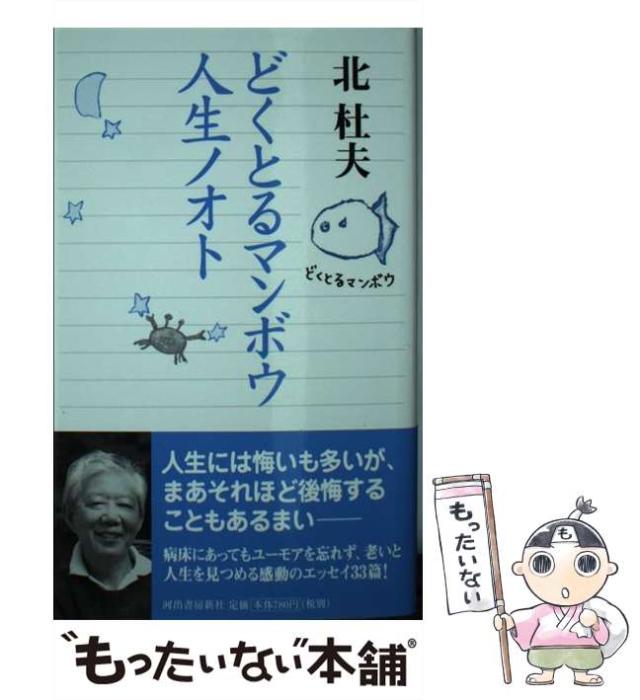 北 杜夫
どくとるマンボウ
どくとるマンボウ
人生ノオト
人生には悔いも多いが、
まあそれほど後悔する
こともあるまい――
病床にあってもユーモアを忘れず、老いと
人生を見つめる感動のエッセイ33篇!
河出書房新社 定価 本体780円(税別)
"もったいない"本舗®
も
もったいない